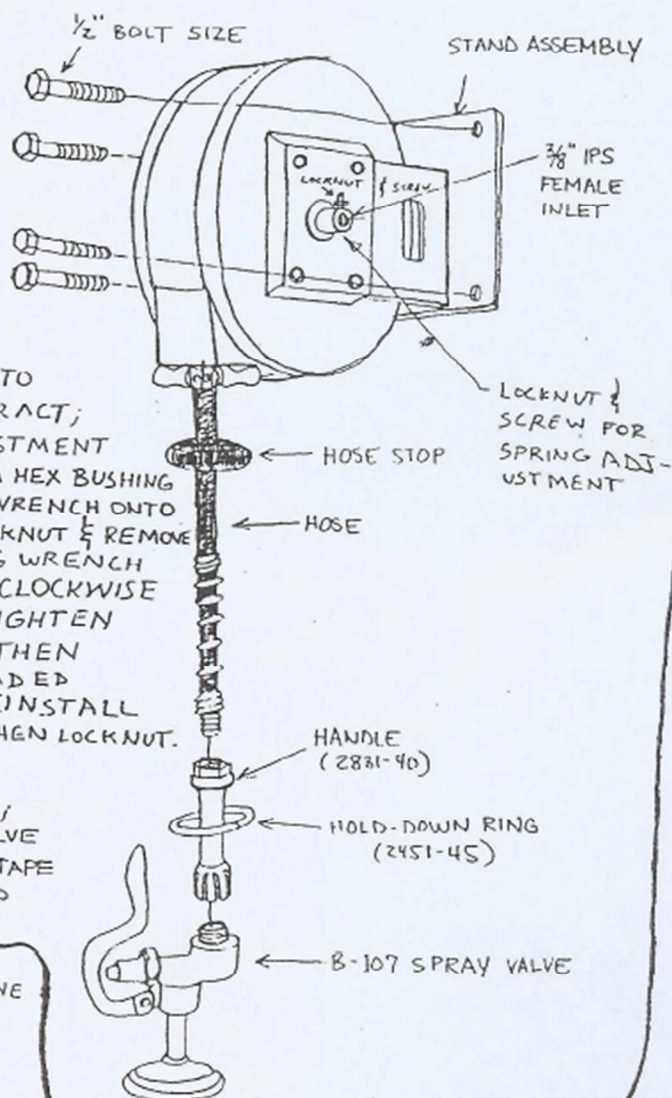 1/2" BOLT SIZE
STAND ASSEMBLY
3/8" IPS
FEMALE
INLET
LOCKNUT & SCREW
LOCKNUT &
SCREW FOR
SPRING ADJ-
USTMENT
TO
RACT;
STMENT
HEX BUSHING
WRENCH ONTO
KNUT & REMOVE
WRENCH
CLOCKWISE
IGHTEN
THEN
DED
INSTALL
HEN LOCKNUT.
LVE
TAPE
NE
HOSE STOP
HOSE
HANDLE
(2831-40)
HOLD-DOWN RING
(2451-45)
B-107 SPRAY VALVE